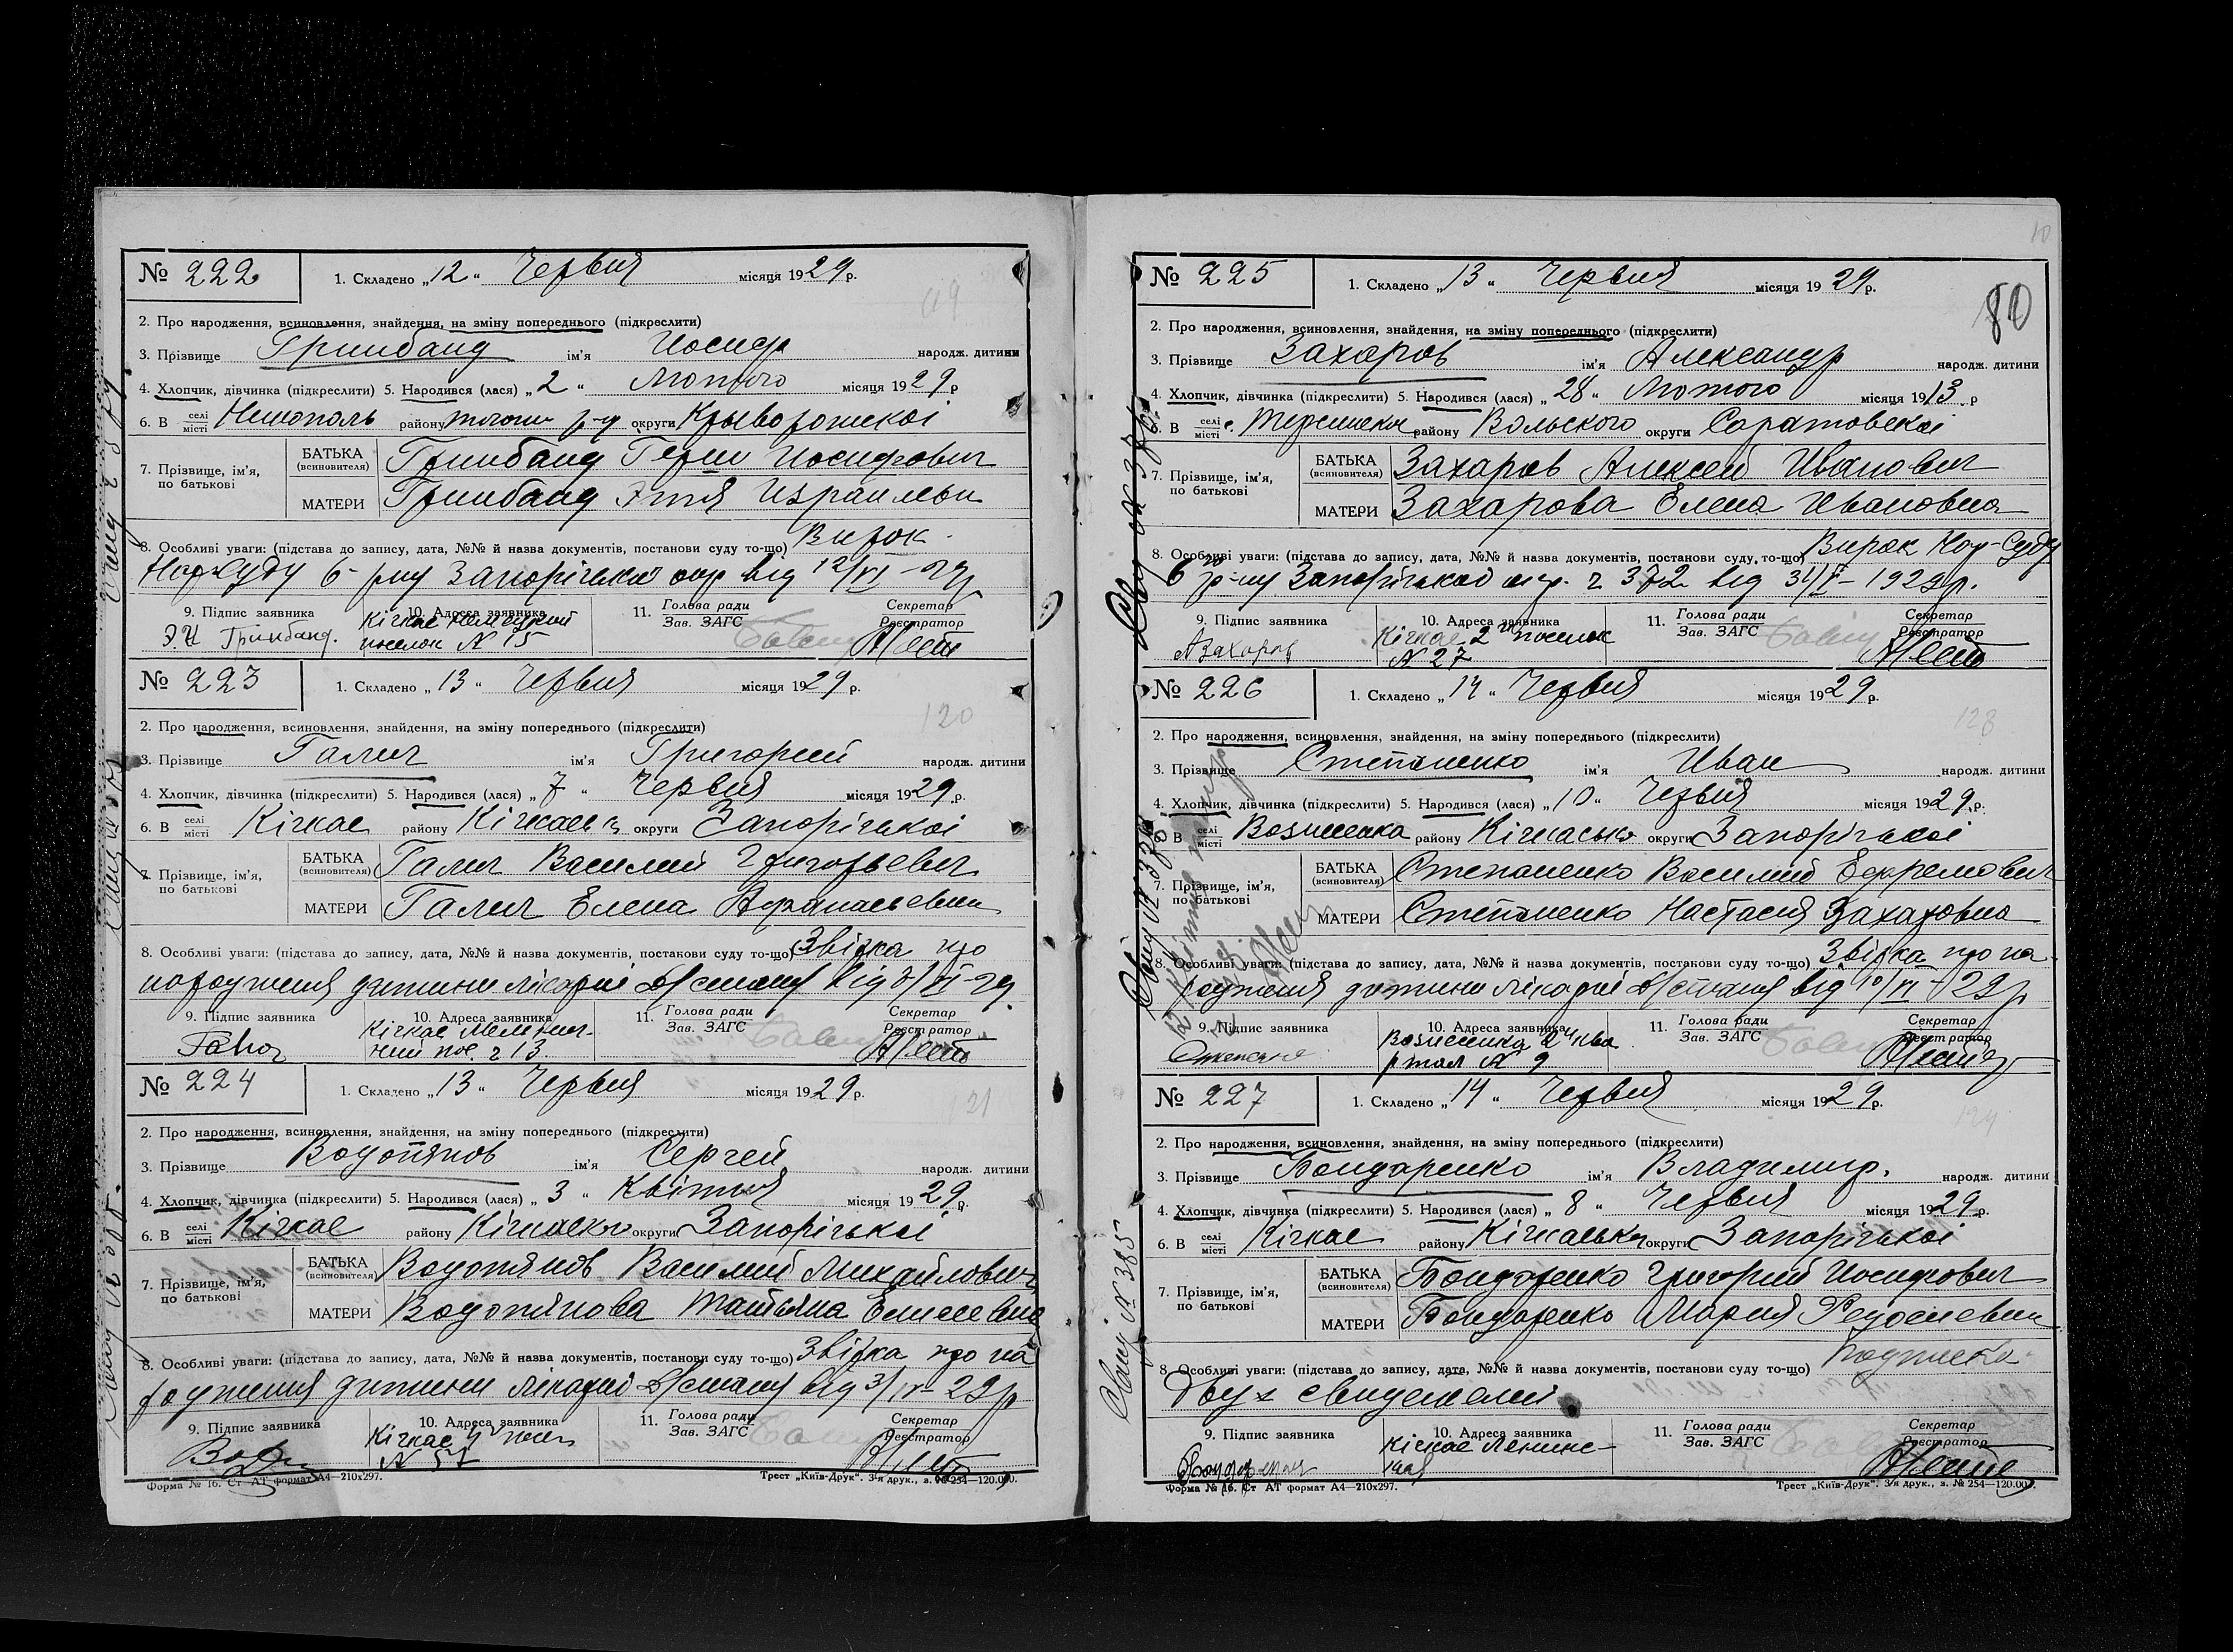 № 222
1. Складено „12“ Червня місяця 1929 р.
2. Про народження, всиновлення, знайдення, на зміну попереднього (підкреслити)
3. Прізвище Гринбанд ім'я Иосиф народж. дитини
4. Хлопчик, дівчинка (підкреслити) 5. Народився (лася) „2“ Лютого місяця 1929 р
6. В селі місті району округи Крыворожскоі
7. Прізвище, ім'я, по батькові
БАТЬКА (всиновителя) Гринбанд Герш Иосифович
МАТЕРИ Гринбанд Этя Израилевн
8. Особливі уваги: (підстава до запису, дата, №№ й назва документів, постанови суду то-що) Вирок
Нарсуду 6 р-ну Запорізькоі окр від 12/VI-29р
9. Підпис заявника 10. Адреса заявника 11. Голова ради Зав. ЗАГС Секретар Реєстратор
Э.И Гринбанд. Кічкас Немецкий поселок № 15
№ 223
1. Складено „13“ Червня місяця 1929 р.
2. Про народження, всиновлення, знайдення, на зміну попереднього (підкреслити)
3. Прізвище Галич ім'я Григорий народж. дитини
4. Хлопчик, дівчинка (підкреслити) 5. Народився (лася) „7“ Червня місяця 1929 р.
6. В селі місті Кічкас району Кічкаськ округи Запорізькоі
7. Прізвище, ім'я, по батькові
БАТЬКА (всиновителя) Галич Василий Григорьевич
МАТЕРИ Галич Елена Афанасьевна
8. Особливі уваги: (підстава до запису, дата, №№ й назва документів, постанови суду то-що) Звідка про
народження дитини лікарні Д/стану від 7/VI-29р
9. Підпис заявника 10. Адреса заявника 11. Голова ради Зав. ЗАГС Секретар Реєстратор
Кічкас
№ 224
1. Складено „13“ Червня місяця 1929 р.
2. Про народження, всиновлення, знайдення, на зміну попереднього (підкреслити)
3. Прізвище Водопянов ім'я Сергей народж. дитини
4. Хлопчик, дівчинка (підкреслити) 5. Народився (лася) „3“ Квітня місяця 1929 р.
6. В селі місті Кічкас району Кічкаско округи Запорізькоі
7. Прізвище, ім'я, по батькові
БАТЬКА (всиновителя) Водопянов Василий Михайлович
МАТЕРИ Водопянова Татьяна Елисеевна
8. Особливі уваги: (підстава до запису, дата, №№ й назва документів, постанови суду то-що) Звідка про на
родження дитини лікарні Д/стану від 3/IV-29р
9. Підпис заявника 10. Адреса заявника 11. Голова ради Зав. ЗАГС Секретар Реєстратор
Кічкас № 57
Форма № 16. Ст АТ формат А4—210х297. Трест „Київ-Друк“. 3-я друк., з. № 254—120.000.
80
№ 225
1. Складено „13“ Червня місяця 1929 р.
2. Про народження, всиновлення, знайдення, на зміну попереднього (підкреслити)
3. Прізвище Захаров ім'я Александр народж. дитини
4. Хлопчик, дівчинка (підкреслити) 5. Народився (лася) „28“ Лютого місяця 1913 р
6. В селі місті району Вольского округи Саратовскоі
7. Прізвище, ім'я, по батькові
БАТЬКА (всиновителя) Захаров Алексей Иванович
МАТЕРИ Захарова Елена Ивановна
8. Особливі уваги: (підстава до запису, дата, №№ й назва документів, постанови суду, то-що) Вирок Нар-Суду
6 р-ну Запорізькоі окр. ч 372 від 31/V-1929р.
9. Підпис заявника 10. Адреса заявника 11. Голова ради Зав. ЗАГС Секретар Реєстратор
АЗахаров Кічкас 2й поселок № 27
№ 226
1. Складено „14“ Червня місяця 1929 р.
2. Про народження, всиновлення, знайдення, на зміну попереднього (підкреслити)
3. Прізвище Степаненко ім'я Иван народж. дитини
4. Хлопчик, дівчинка (підкреслити) 5. Народився (лася) „10“ Червня місяця 1929 р.
6. В селі місті Вознесенка району Кічкасько округи Запорізькоі
7. Прізвище, ім'я, по батькові
БАТЬКА (всиновителя) Степаненко Василий Ефремович
МАТЕРИ Степаненко Настасия Захаровна
8. Особливі уваги: (підстава до запису, дата, №№ й назва документів, постанови суду то-що) Звідка про на
родження дитини лікарні Д/стану від 10/VI-29р
9. Підпис заявника 10. Адреса заявника 11. Голова ради Зав. ЗАГС Секретар Реєстратор
Вознесенка 2й ква ртал № 9
№ 227
1. Складено „14“ Червня місяця 1929 р.
2. Про народження, всиновлення, знайдення, на зміну попереднього (підкреслити)
3. Прізвище Бондаренко ім'я Владимир. народж. дитини
4. Хлопчик, дівчинка (підкреслити) 5. Народився (лася) „8“ Червня місяця 1929 р.
6. В селі місті Кічкас району Кічкаська округи Запорізькоі
7. Прізвище, ім'я, по батькові
БАТЬКА (всиновителя) Бондаренко Григорий Иосифович
МАТЕРИ Бондаренко Мария Федосиевна
8. Особливі уваги: (підстава до запису, дата, №№ й назва документів, постанови суду то-що) Подписка
двух свидетелей
9. Підпис заявника 10. Адреса заявника 11. Голова ради Зав. ЗАГС Секретар Реєстратор
Кічкас Ленинс-кая
Форма № 16. Ст АТ формат А4—210х297. Трест „Київ-Друк“. 3/я друк., з. № 254—120.000.